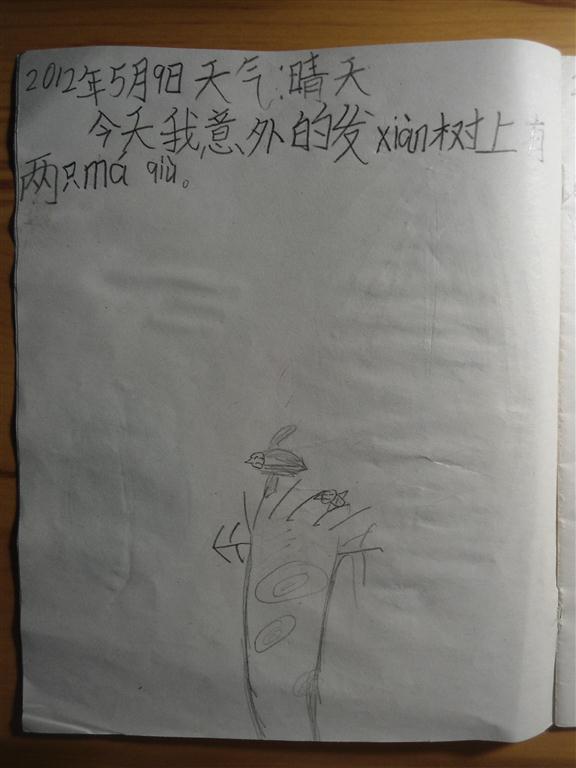 2012年5月9日天气:晴天
今天我意外的发xiàn树上有
两只má qiù。